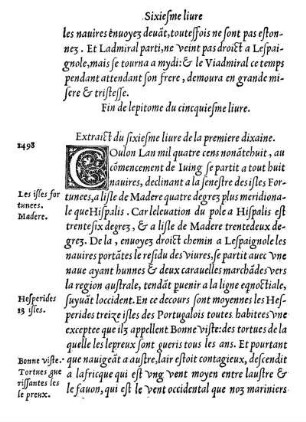 Sixiesme liure
les nauires ẽuoyez deuãt, toutesfois ne sont pas eston-
nez. Et Ladmiral parti, ne veint pas droict a Lespai-
gnole, mais se tourna a mydi: & le Viadmiral ce temps
pendant attendant son frere, demoura en grande mi-
sere & tristesse.
Fin de lepitome du cincquiesme liure.
Extraict du sixiesme liure de la premiere dixaine.
1498
COulon Lan mil quatre cens nonãtehuit, au
cõmencement de Iuing se partit a tout huit
nauires, declinant a la senestre des isles For
Les isles for
tunees, a lisle de Madere quatre degrez plus meridiona-
tunees.
Madere.
le que Hispalis. Car leleuation du pole a Hispalis est
trentesix degrez, & a lisle de Madere trentedeux de-
grez. De la, enuoyez droict chemin a Lespaignole les
nauires portãtes le residu des viures, se partit auec vne
naue ayant hunnes & deux carauelles marchãdes vers
la region australe, tendãt puenir a la ligne eqnoctiale,
Hesperides
suyuãt loccident. En ce decours sont moyennes les Hes-
13 isles.
perides treize isles des Portugalois toutes habitees vne
exceptee que ilz appellent Bonne viste: des tortues de la
quelle les lepreux sont gueris tous les ans. Et pourtant
Bonne viste.
que nauigeãt a austre, lair estoit contagieux, descendit
Tortues gue
a lafricque qui est vng vent moyen entre laustre &
rissantes les
le fauon, qui est le vent occidental que noz mariniers
lepreux.